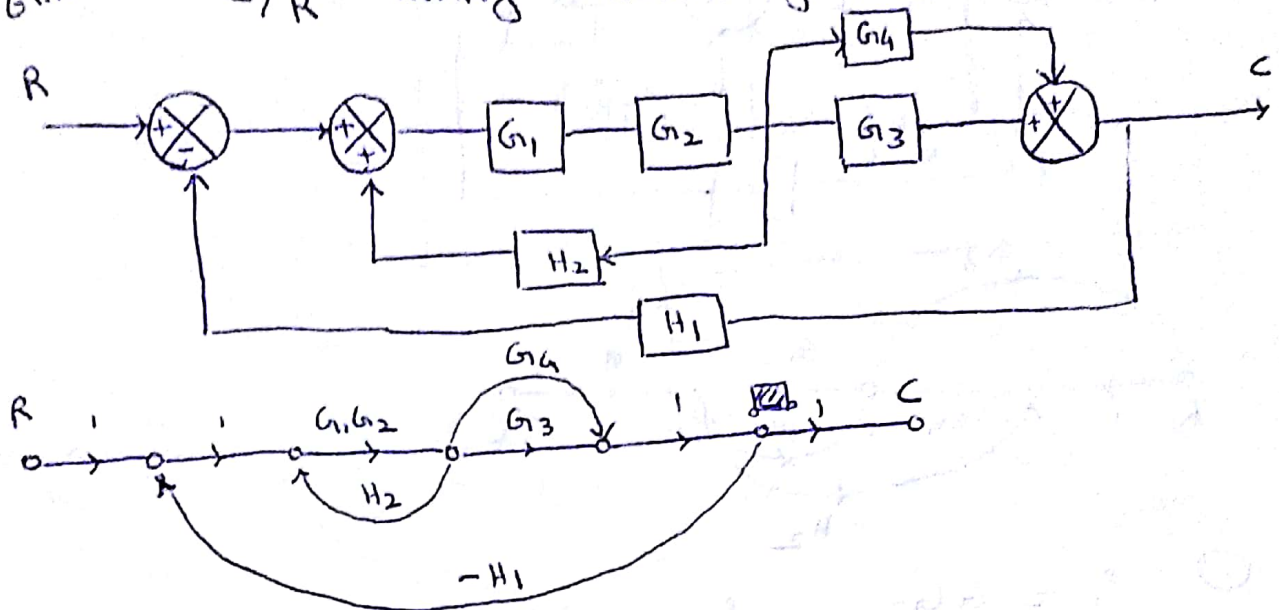 R
G4
C
+
-
+
+
G1
G2
G3
+
+
H2
H1
R
1
1
G1G2
G4
G3
1
1
C
H2
-H1